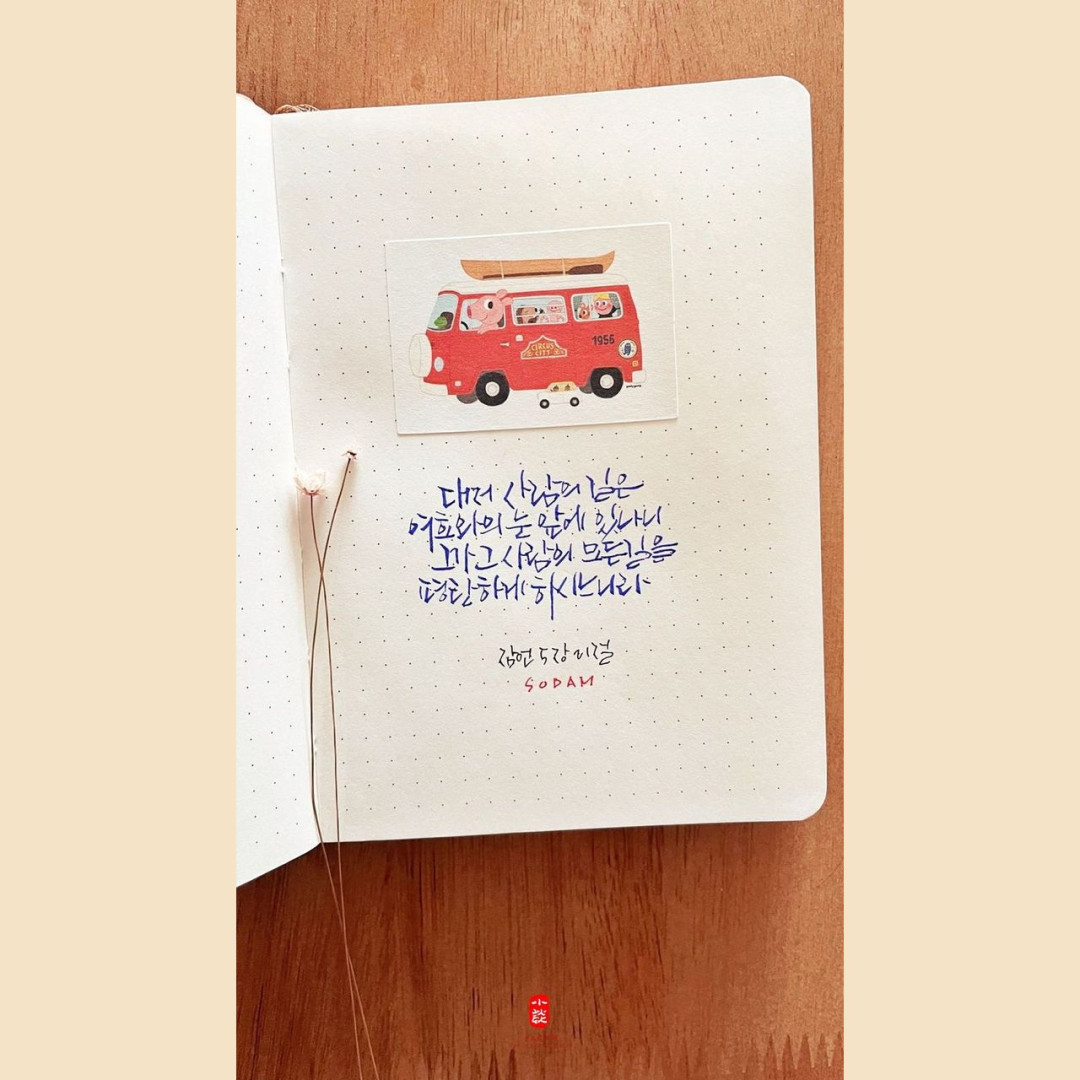 CIRCUS
CITY
1956
대저 사람의 길은
여호와의 눈 앞에 있나니
그가 그 사람의 모든 길을
평탄하게 하시느니라
잠언 5장 21절
SODAM
小
談